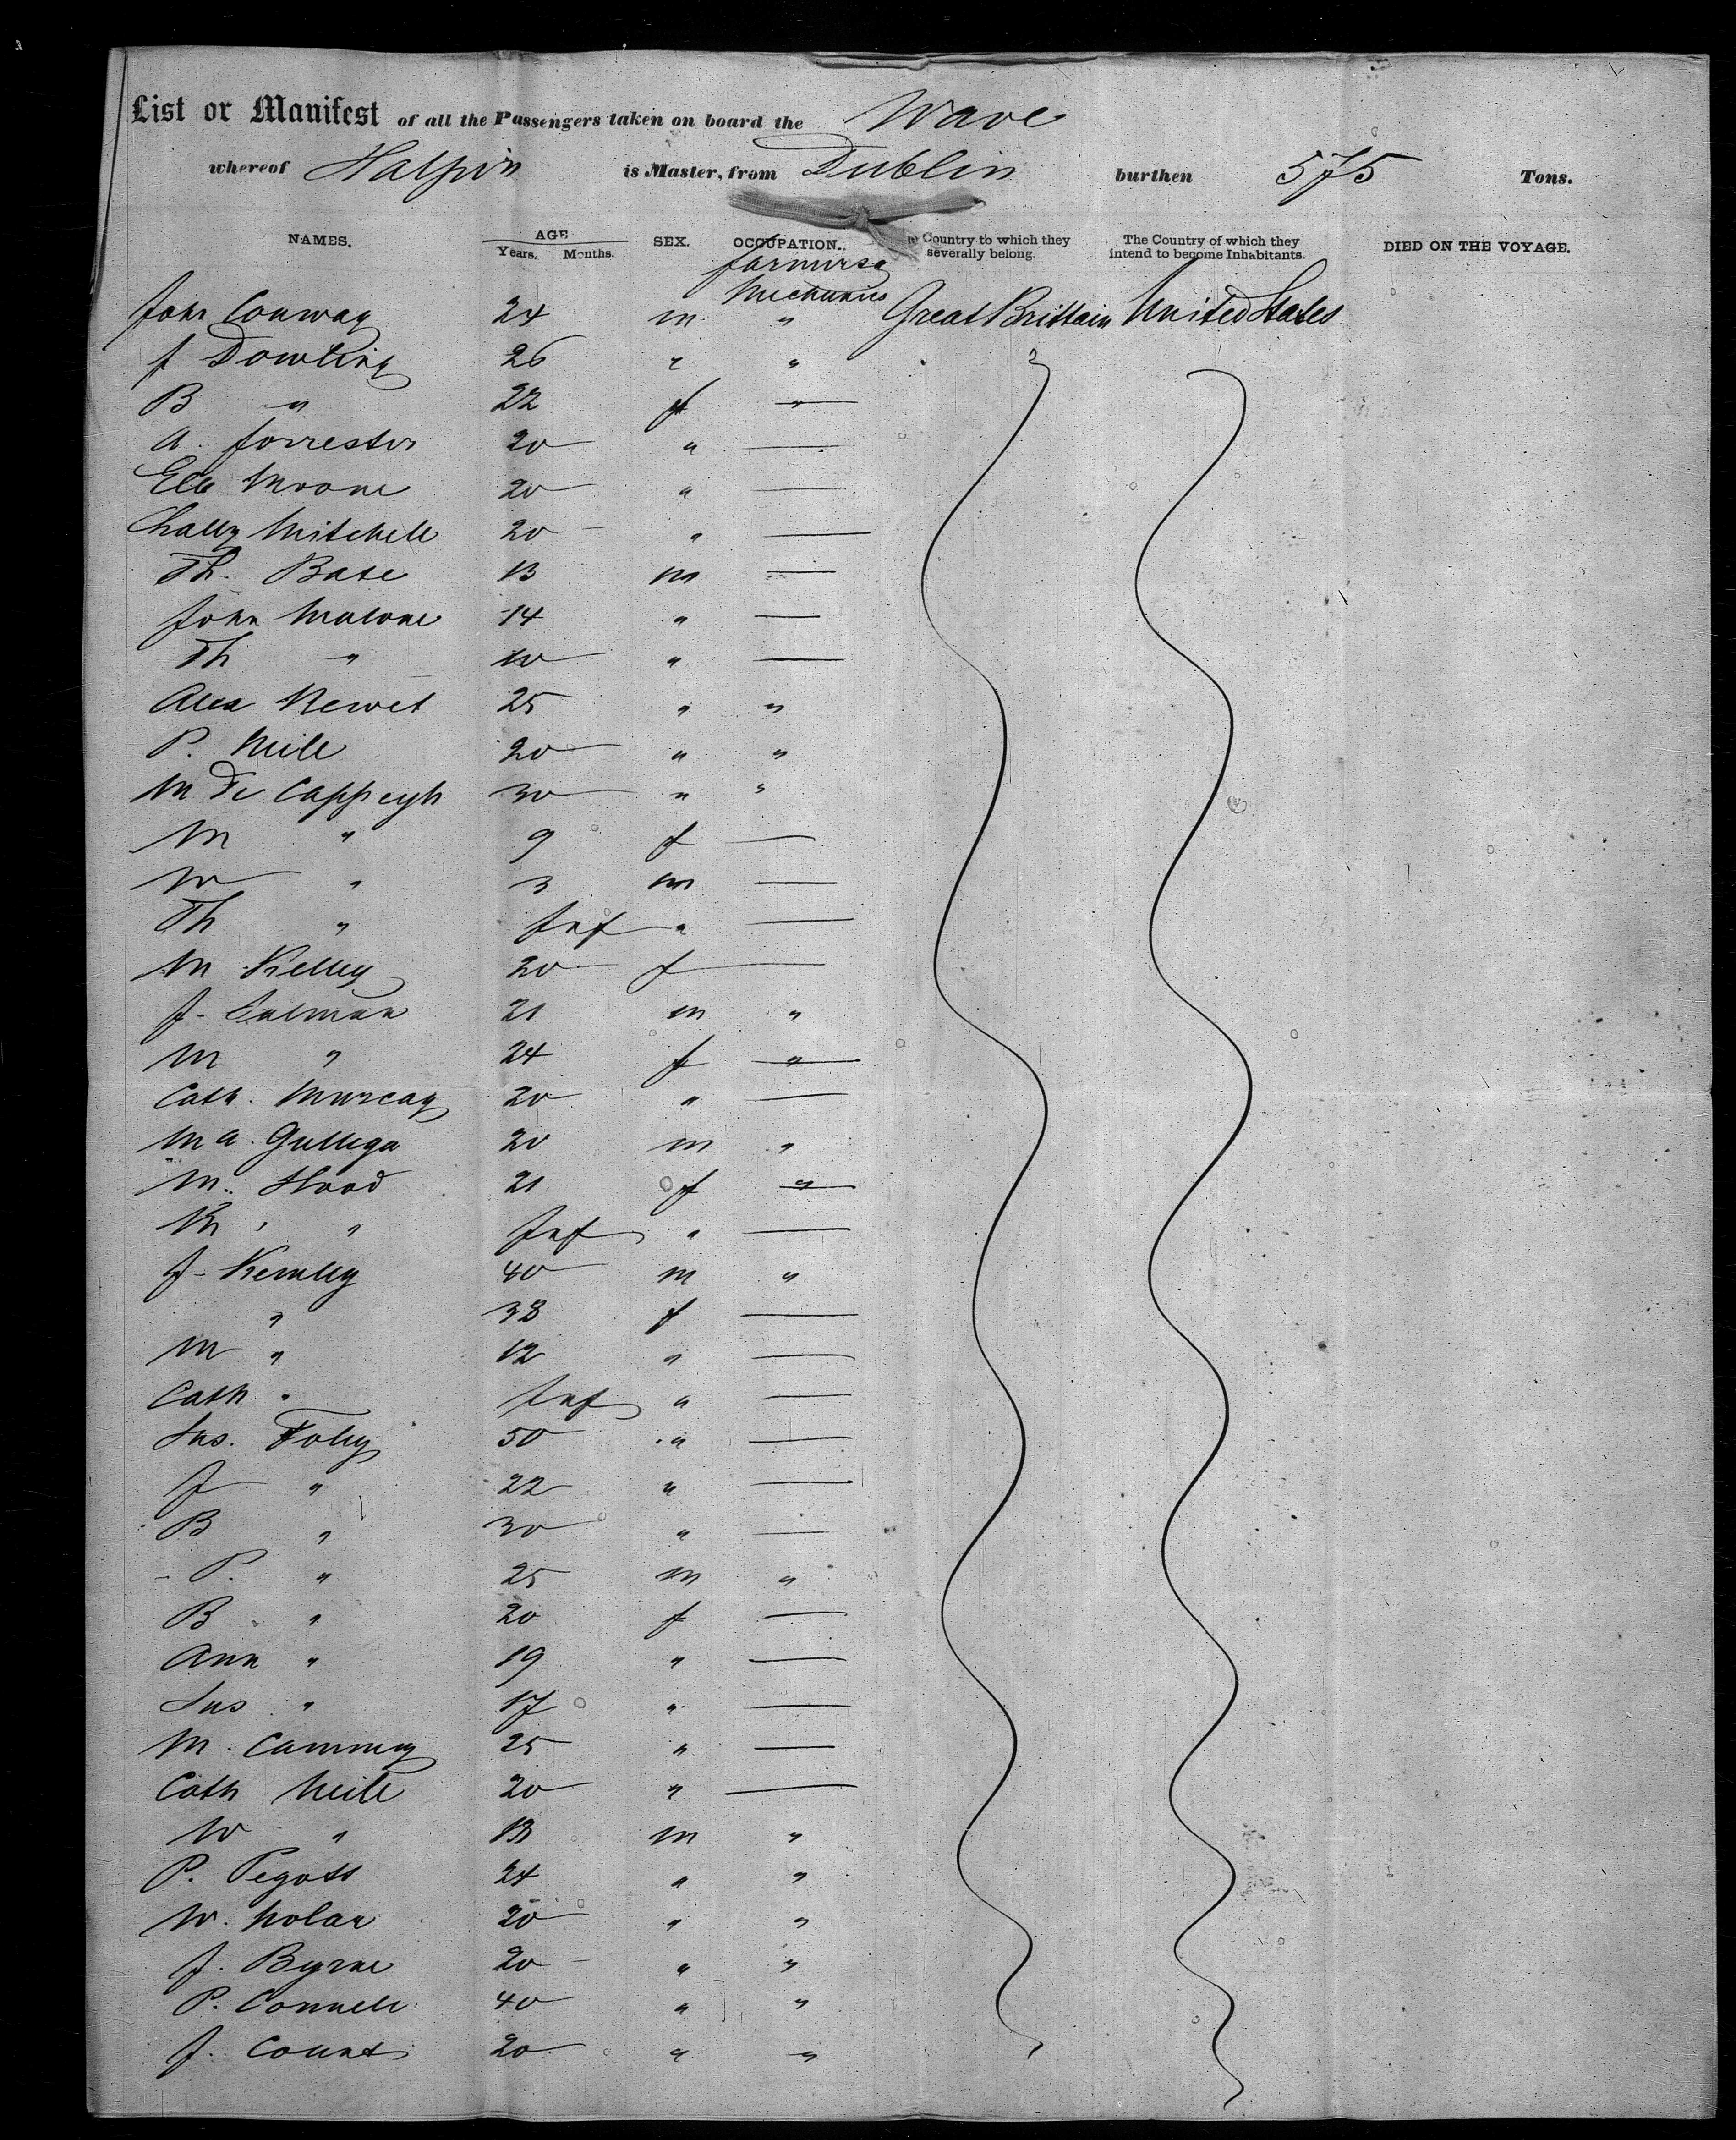 List or Manifest of all the Passengers taken on board the Wave
whereof Halpin is Master, from Dublin burthen 575 Tons.
NAMES. AGE Years. Months. SEX. OCCUPATION. Country to which they severally belong. The Country of which they intend to become Inhabitants. DIED ON THE VOYAGE.
farmers &
Mechanics
John Conway 24 m " Great Brittain United States
J Dowling 26 " "
B " 22 f "
A. Forrester 20 " —
Ele Moone 20 " —
Chally Mitchell 20 " —
Th. Base 13 m —
John Malone 14 " —
Th " 10 " —
Alex Newet 25 " "
P. Neile 20 " "
M De Cappeyh 30 " "
M " 9 f —
W " 3 m —
Th " Inf " —
M Kelley 20 f —
J. Salman 21 m "
M " 24 f "
Cath. Murray 20 " —
M A. Gulliga 20 m "
M. Hood 21 f "
M " Inf " —
J. Kemley 40 m "
" 38 f —
M " 12 " —
Cath " Inf " —
Sus. Foley 50 " —
J " 22 " —
B " 30 " —
P. " 25 m "
B " 20 f —
Ann " 19 " —
Sus " 17 " —
M. Cammey 25 " —
Cath Neile 20 " —
W " 13 m "
P. Pegott 24 " "
W. Nolan 20 " "
J. Byrne 20 " "
P. Connell 40 " "
J. Count 20 " "